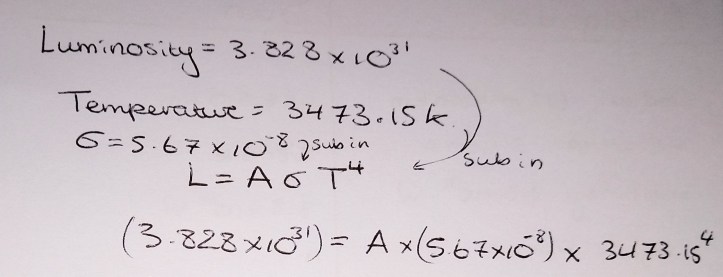 Luminosity = 3.828 x 10³¹
Temperature = 3473.15k
σ = 5.67 x 10⁻⁸ sub in
L = A σ T⁴
sub in
(3.828 x 10³¹) = A x (5.67x10⁻⁸) x 3473.15⁴